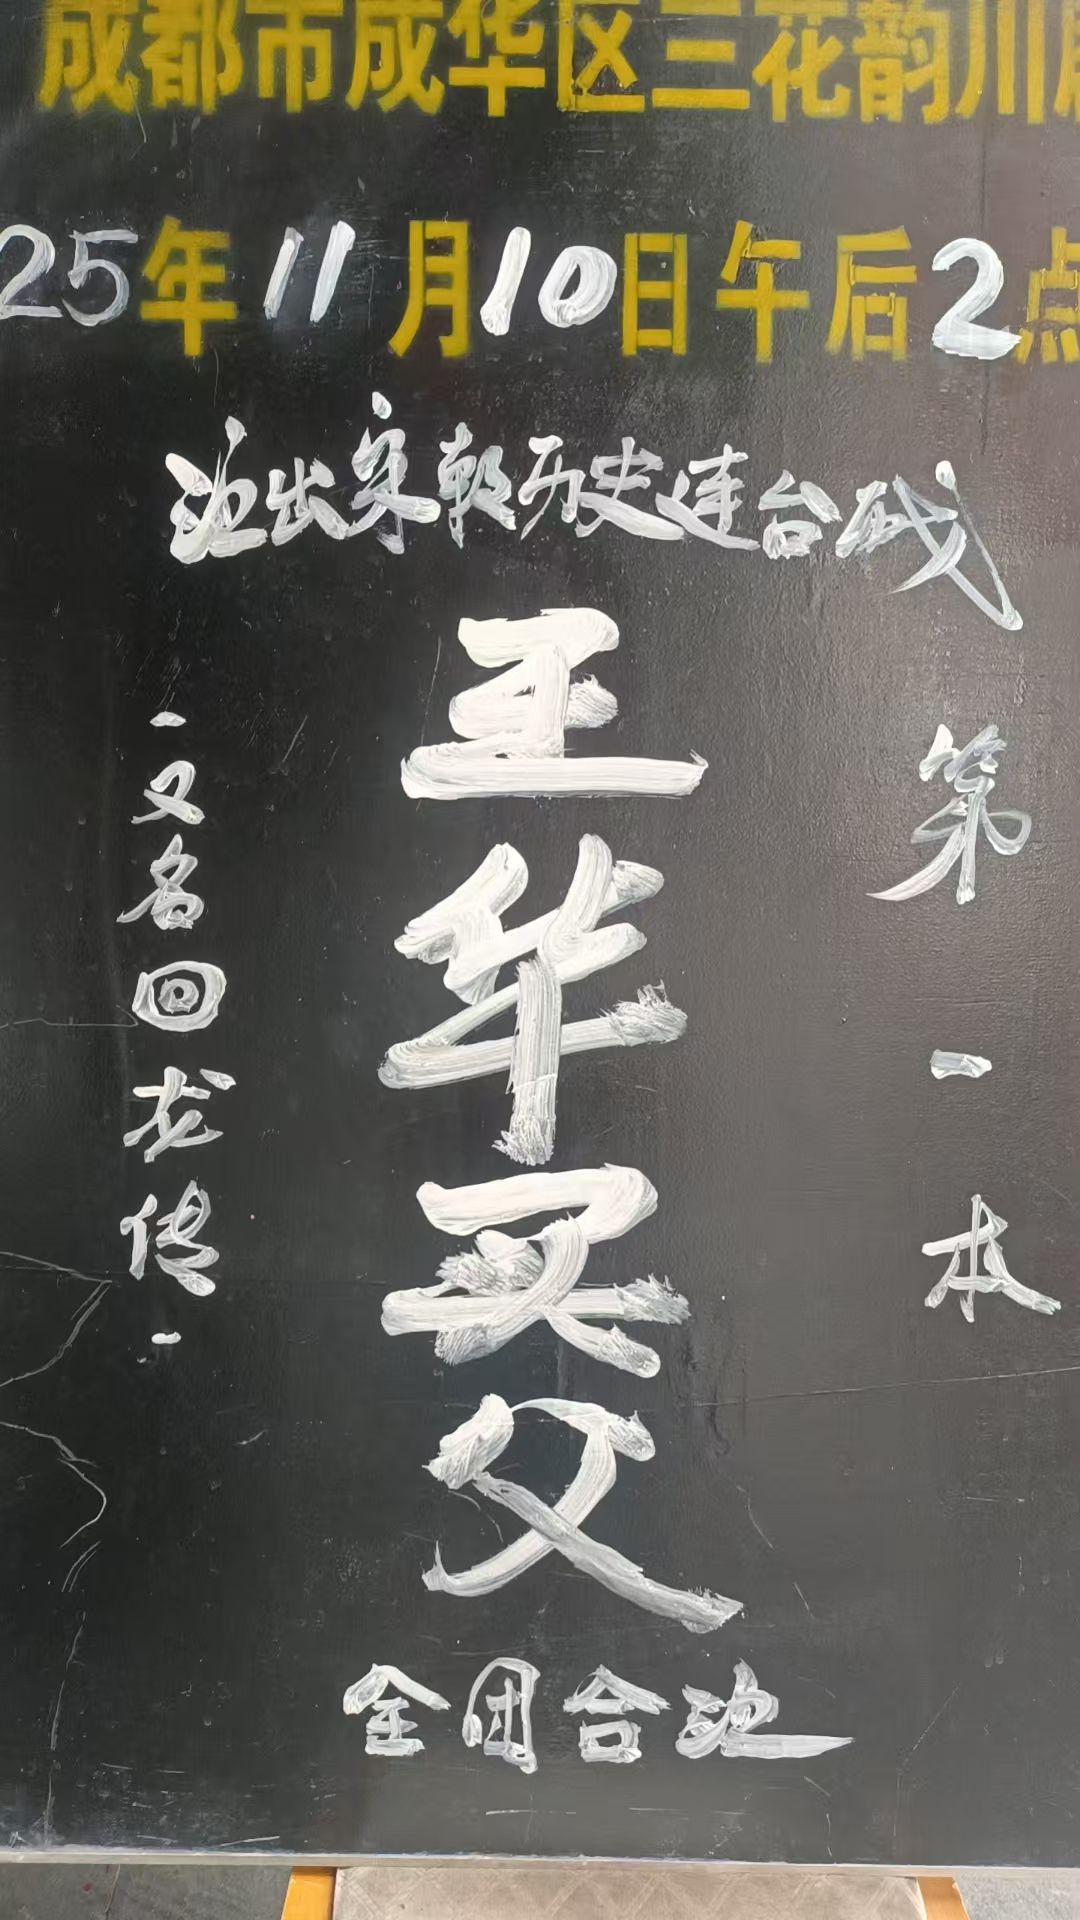 成都市成华区三花韵川剧
25年11月10日午后2点
演出宋朝历史连台戏
第一本
王华买父
-又名回龙传-
全团合演